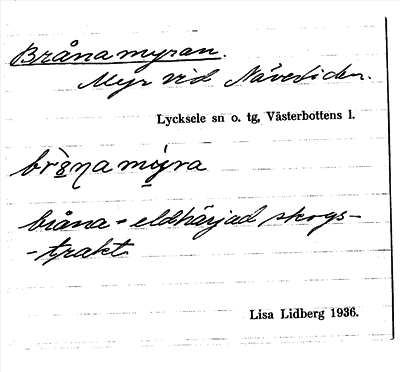 Brånamyran.
Myr vid Näverliden.
Lycksele sn o. tg, Västerbottens l.
brå̀ŋa my̆ra
bråna = eldhärjad skogs-
-trakt.
Lisa Lidberg 1936.